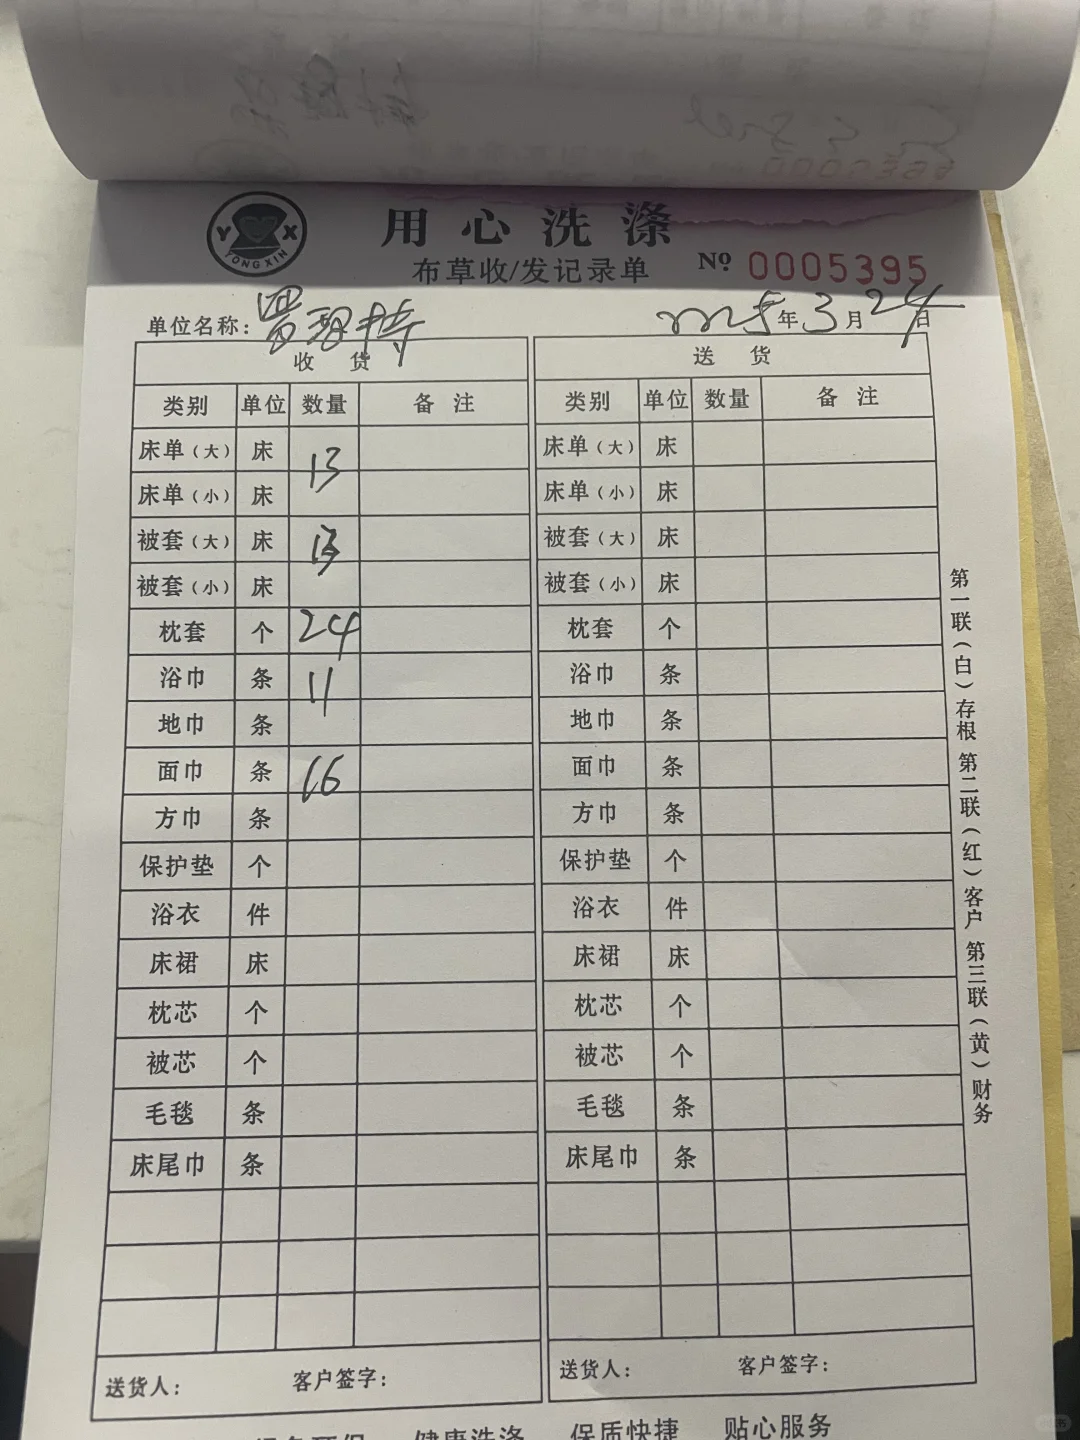 YX
YONG XIN
用心洗涤
布草收/发记录单 № 0005395
单位名称: 2025年3月24日
收货 送货
类别 单位 数量 备注 类别 单位 数量 备注
床单(大) 床 13 床单(大) 床
床单(小) 床 床单(小) 床
被套(大) 床 13 被套(大) 床
被套(小) 床 被套(小) 床
枕套 个 24 枕套 个
浴巾 条 11 浴巾 条
地巾 条 地巾 条
面巾 条 16 面巾 条
方巾 条 方巾 条
保护垫 个 保护垫 个
浴衣 件 浴衣 件
床裙 床 床裙 床
枕芯 个 枕芯 个
被芯 个 被芯 个
毛毯 条 毛毯 条
床尾巾 条 床尾巾 条
送货人: 客户签字: 送货人: 客户签字:
第一联(白)存根 第二联(红)客户 第三联(黄)财务
健康洗涤 保质快捷 贴心服务